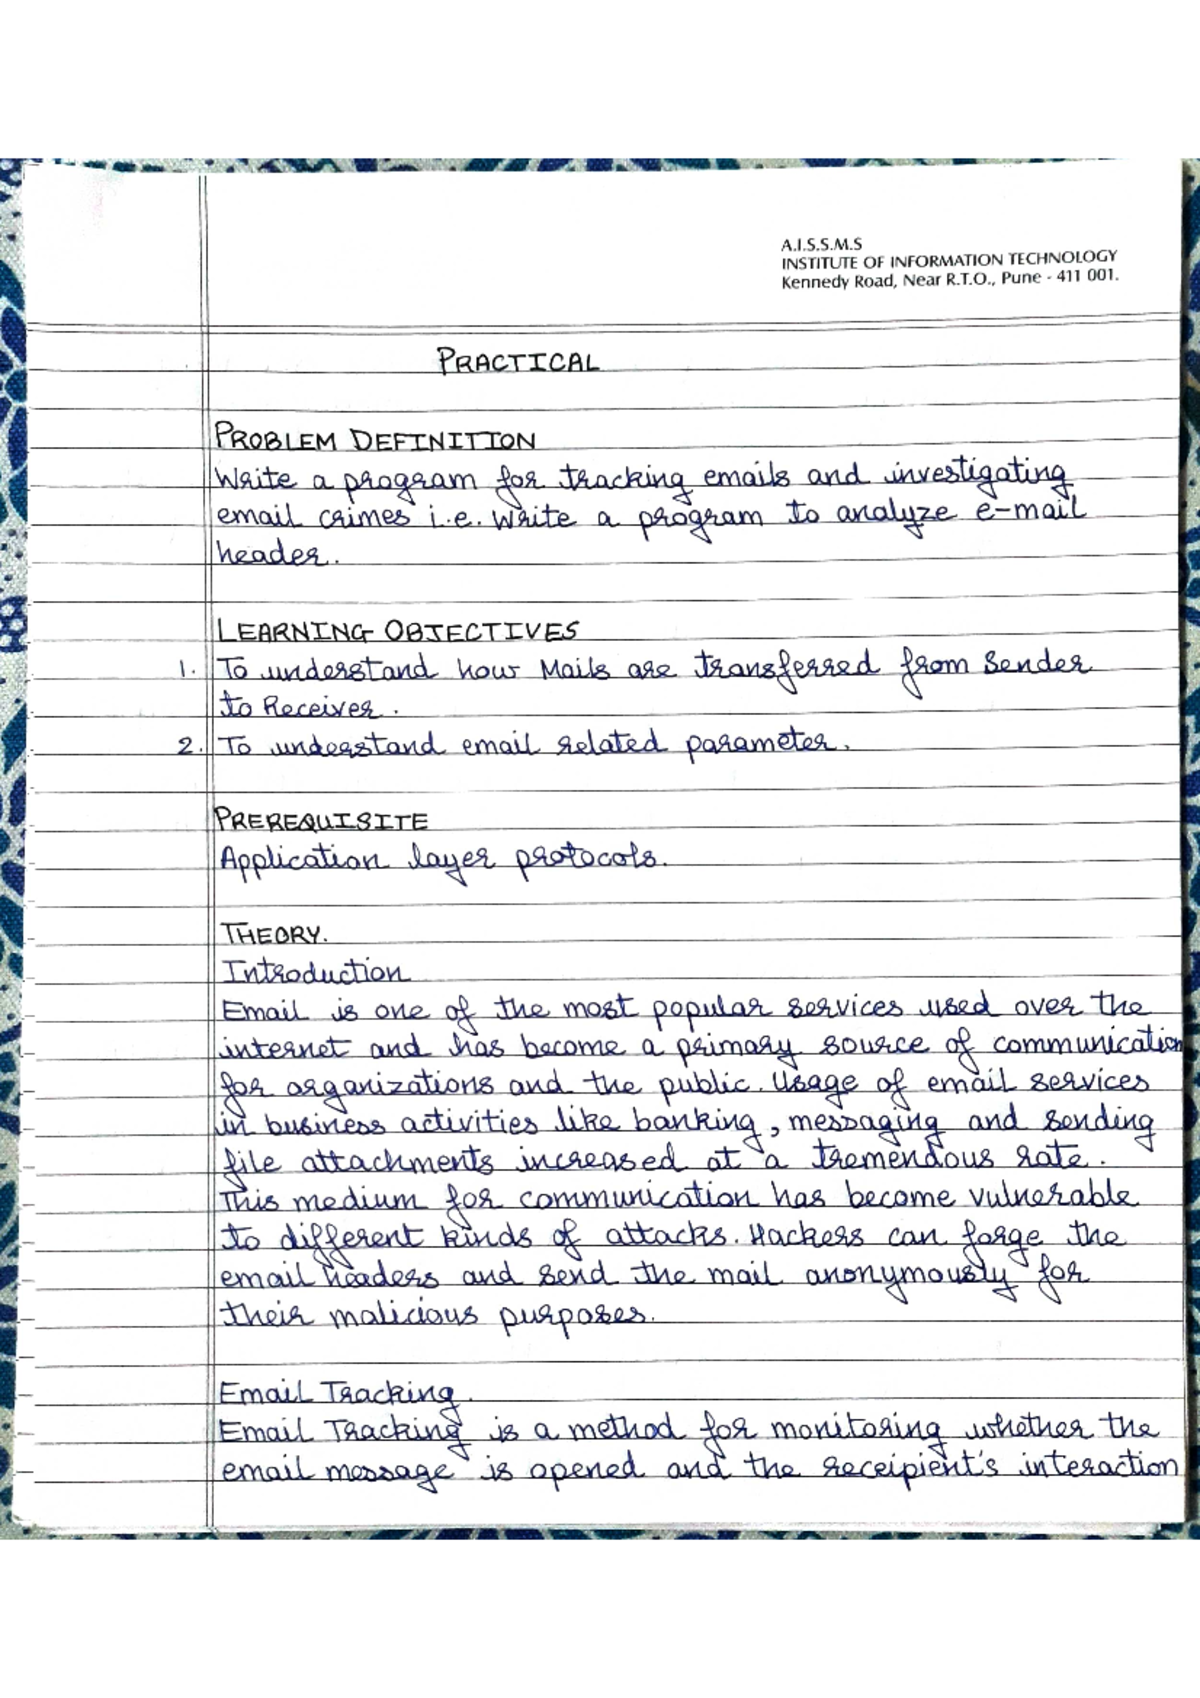 A.I.S.S.M.S
INSTITUTE OF INFORMATION TECHNOLOGY
Kennedy Road, Near R.T.O., Pune - 411 001.
PRACTICAL
PROBLEM DEFINITION
Write a program for tracking emails and investigating
email crimes i.e. Write a program to analyze e-mail
header.
LEARNING OBJECTIVES
1. To understand how Mails are transferred from Sender
to Receiver.
2. To understand email related parameter.
PREREQUISITE
Application layer protocols.
THEORY.
Introduction
Email is one of the most popular services used over the
internet and has become a primary source of communication
for organizations and the public. Usage of email services
in business activities like banking, messaging and sending
file attachments increased at a tremendous rate.
This medium for communication has become vulnerable
to different kinds of attacks. Hackers can forge the
email headers and send the mail anonymously for
their malicious purposes.
Email Tracking.
Email Tracking is a method for monitoring whether the
email message is opened and the receipient's interaction